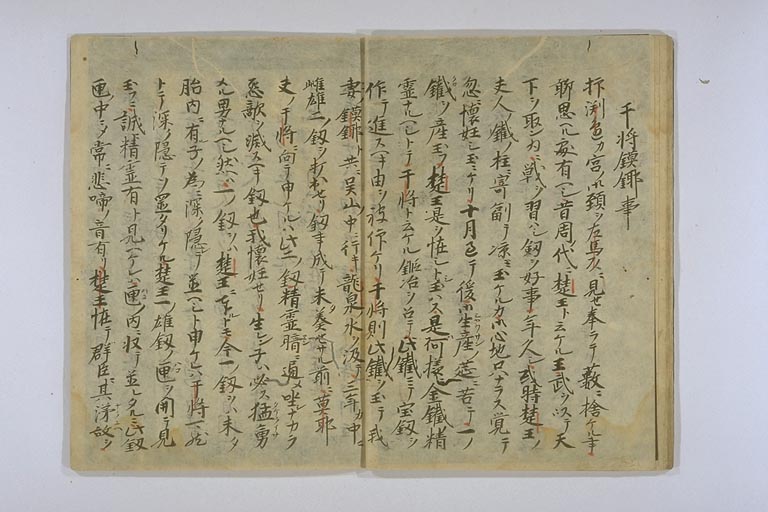 干将鏌鎁事
抑渕邉カ宮ノ御頸ヲ左馬頭ニ見セ奉ラテ薮ニ捨ケル事
聊思ヘル處有ヘシ昔周代ニ楚王ト云ケル王武ヲ以テ天
下ヲ取ン為ニ戦ヲ習ハシ釼ヲ好事年久シ或時楚王ノ
夫人鐵ノ柱ニ寄副テ凉玉ケルカ心地只ナラス覚テ
忽ニ懐妊シ玉ケリ十月過テ後生産ノ席ニ苦テ一ノ
鐵ヲ産玉フ楚王是ヲ恠ミト玉ハス是何樣金鐵精
霊ナルヘシトテ干将ト云ケル鍛冶ヲ召テ此鐵ニテ宝釼ヲ
作テ進ス可由ヲ被仰ケリ干将則此鐵ヲ玉テ我
妻ノ鏌鎁ト共ニ呉山中ニ行キ龍泉水ヲ汲テ三年カ中ニ
雌雄二ノ釼ヲ打出セリ釼事成テ未奏セサル前ニ莫耶
夫ノ干将ニ向テ申ケルハ此二ノ釼精霊暗ニ通メ坐ナカラ
怨敵ヲ滅ス可釼也我懐妊セリ生レン子ハ必ス猛勇
ナル男ナルヘシ然ハ一ノ釼ヲハ楚王ニ進トモ今一ノ釼ヲハ未タ
胎内ニ有子ノ為ニ深ク隠テ置ヘシト申ケレハ干将尤
トテ深ク隠テソ置タリケル楚王一雄釼ノ匣ヲ開テ見
玉フニ誠精霊有ト見ヘケレハ匣ノ内ニ収テ置レタルニ此釼
匣中ニメ常ニ悲啼ノ音有リ楚王恠テ群臣ニ其泪故ヲ